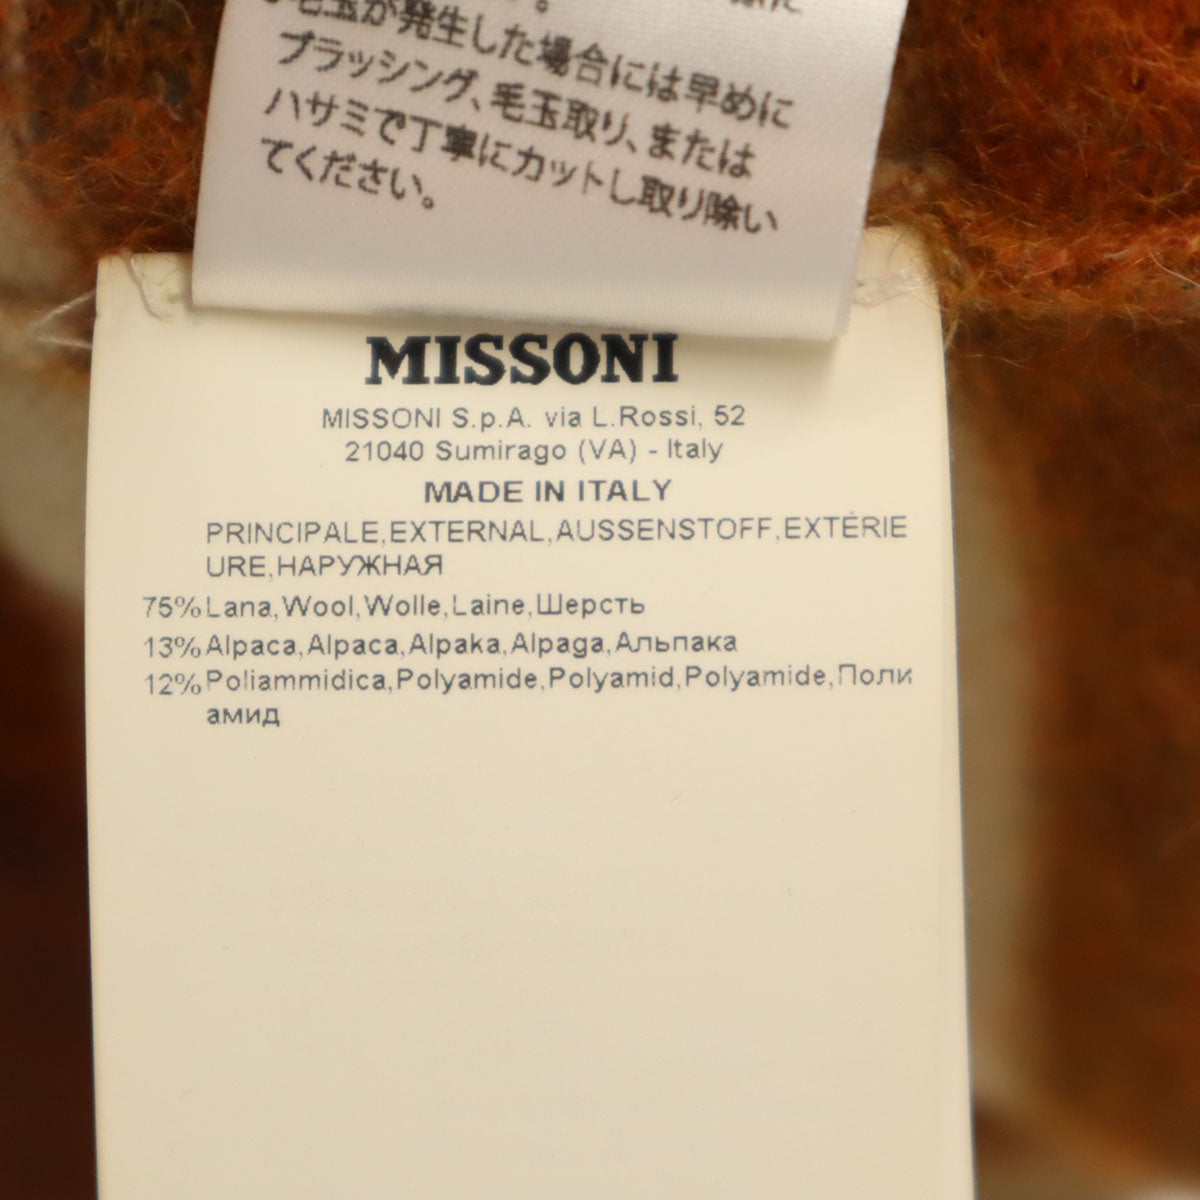 毛玉が発生した場合には早めに
ブラッシング、毛玉取り、または
ハサミで丁寧にカットし取り除い
てください。
MISSONI
MISSONI S.p.A. via L.Rossi, 52
21040 Sumirago (VA) - Italy
MADE IN ITALY
PRINCIPALE,EXTERNAL,AUSSENSTOFF,EXTÉRIE
URE,НАРУЖНАЯ
75% Lana,Wool,Wolle,Laine,Шерсть
13% Alpaca,Alpaca,Alpaka,Alpaga,Альпака
12% Poliammidica,Polyamide,Polyamid,Polyamide,Поли
амид